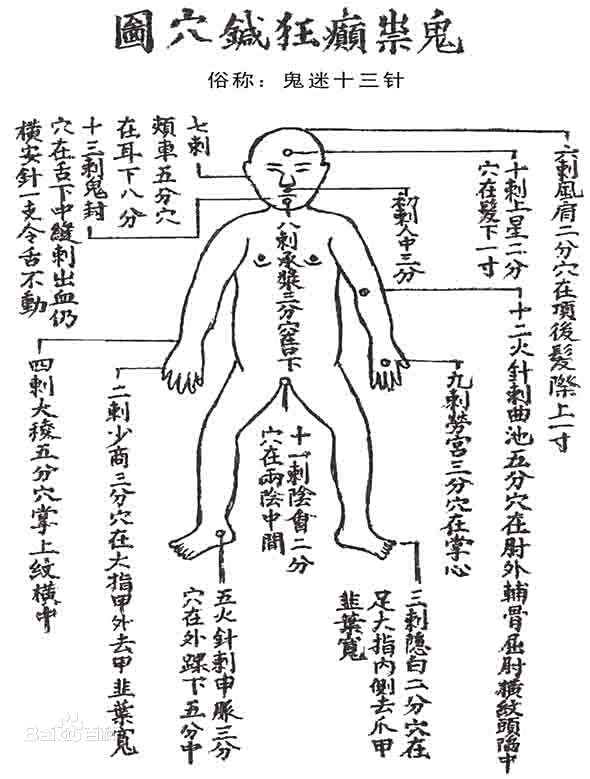 鬼祟癲狂鍼穴圖
俗称：鬼迷十三针
六刺風府二分穴在項後髮際上一寸
十刺上星二分
穴在髮下一寸
初刺人中三分
十二火針刺曲池五分穴在肘外輔骨屈肘橫紋頭陷中
九刺勞宮三分穴在掌心
三刺隐白二分穴在
足大指内側去爪甲
韭葉寬
八刺承漿三分穴唇下
十一刺陰會二分
穴在兩陰中間
五火針刺申脈三分
穴在外踝下五分中
七刺
頰車五分穴
在耳下八分
十三刺鬼封
穴在舌下中縫刺出血仍
橫安針一支令舌不動
二刺少商三分穴在大指甲外去甲韭葉寬
四刺大稜五分穴掌上紋橫中
Bai百科